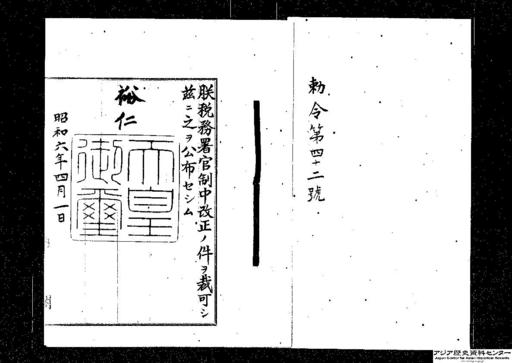 勅令第四十二號
朕税務署官制中改正ノ件ヲ裁可シ
茲ニ之ヲ公布セシム
裕仁
天皇御璽
昭和六年四月一日
アジア歴史資料センター
Japan Center for Asian Historical Records